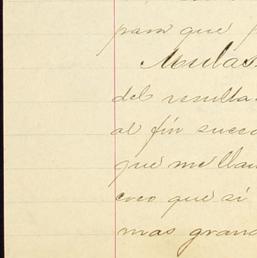 para que
Mulas
del resulta
al fin suce
que me lla
creo que si
mas grand